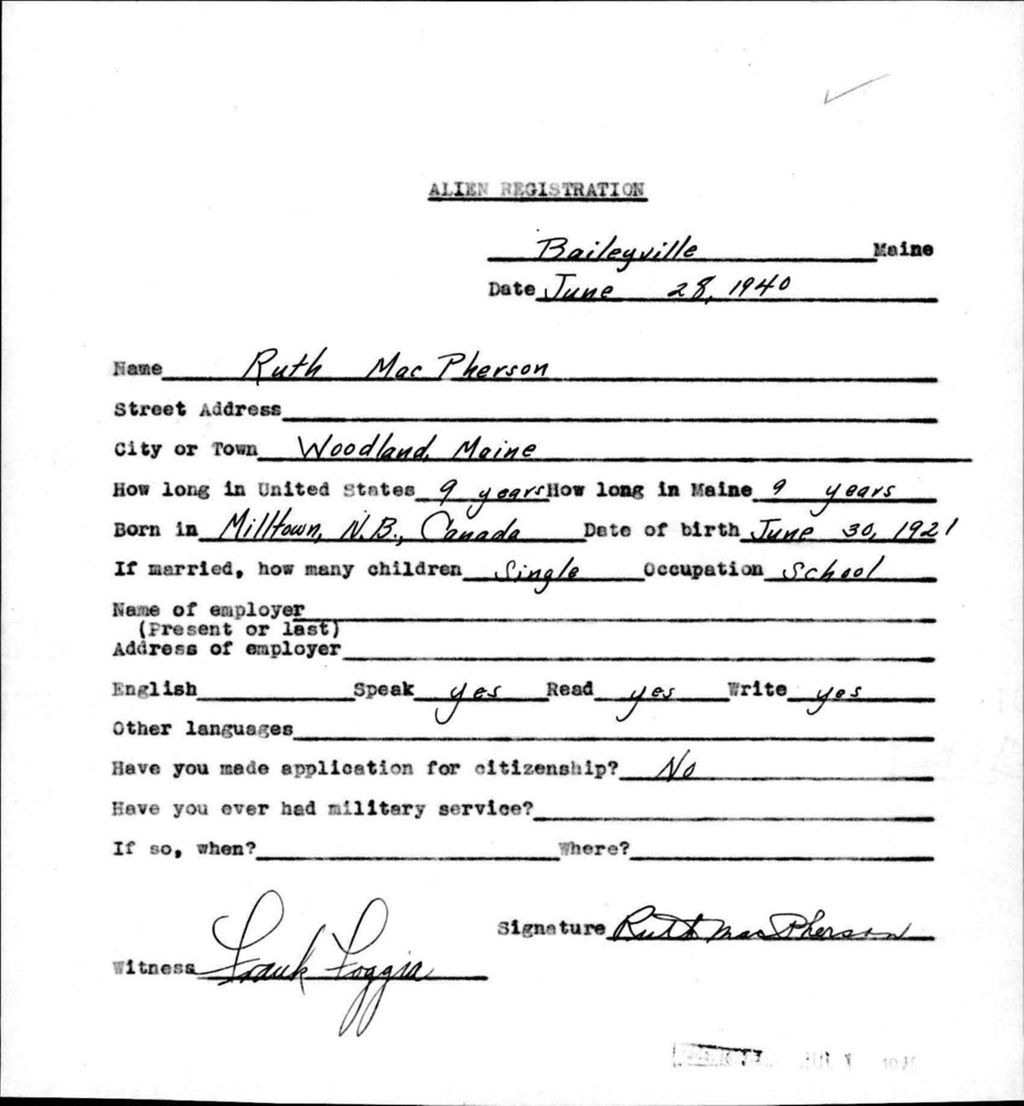 ALIEN REGISTRATION
Baileyville Maine
Date June 28, 1940
Name Ruth Mac Pherson
Street Address
City or Town Woodland, Maine
How long in United States 9 years How long in Maine 9 years
Born in Milltown, N.B., Canada Date of birth June 30, 1921
If married, how many children Single Occupation School
Name of employer
(Present or last)
Address of employer
English Speak yes Read yes Write yes
Other languages
Have you made application for citizenship? No
Have you ever had military service?
If so, when? Where?
Signature Ruth Mac Pherson
Witness Frank Foggia